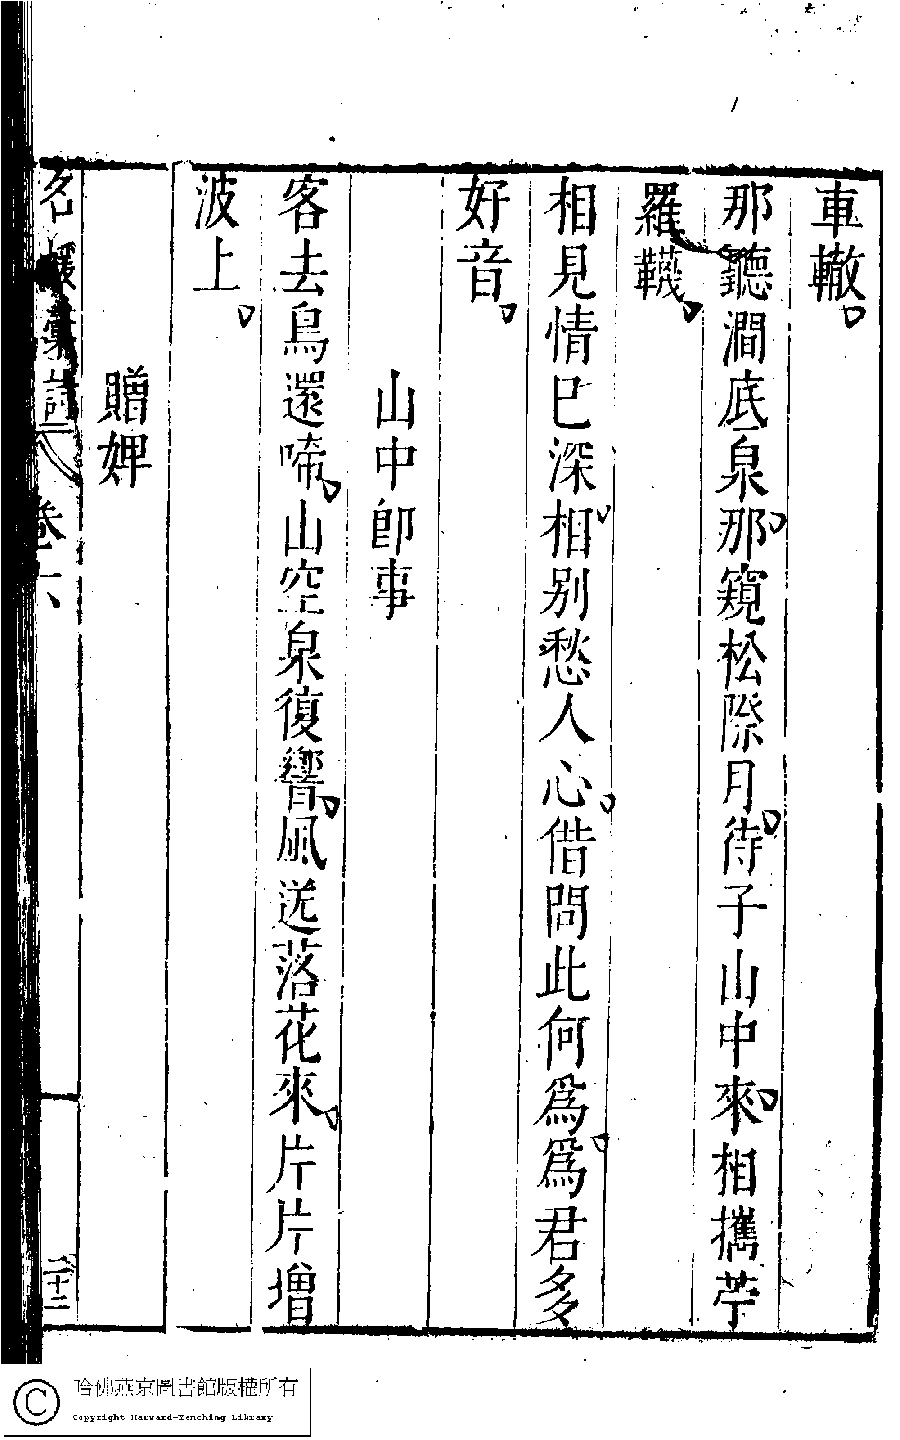 車轍
那聽澗底泉那窺松際月待子山中來相攜苧
羅韈
相見情已深相别愁人心偕問此何爲爲君多
好音
山中卽事
客去鳥還啼山空泉復響風送落花來片片增
波上
贈婢
名媛彙詩 卷六
二十二
哈佛燕京圖書館版權所有
Copyright Harvard-Yenching Library